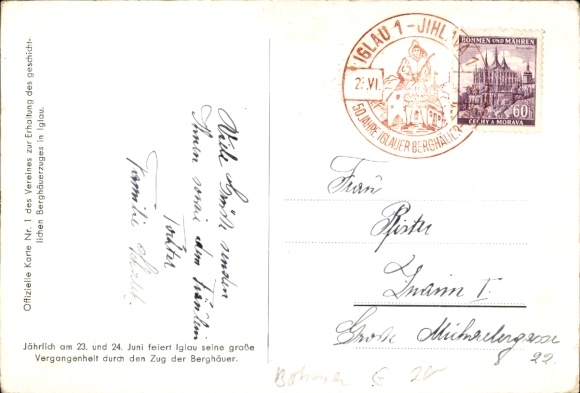 Offizielle Karte Nr. 1 des Vereines zur Erhaltung des geschicht-
lichen Berghäuerzuges in Iglau.
Viele Grüße senden
Ihnen sowie dem Fräulein
Tochter
Familie
Jährlich am 23. und 24. Juni feiert Iglau seine große
Vergangenheit durch den Zug der Berghäuer.
IGLAU 1 - JIHLAVA 1
50 JAHRE IGLAUER BERGHÄUER
BÖHMEN UND MÄHREN
60h
ČECHY A MORAVA
Frau
Znaim I.
Große Michaelergasse
22.